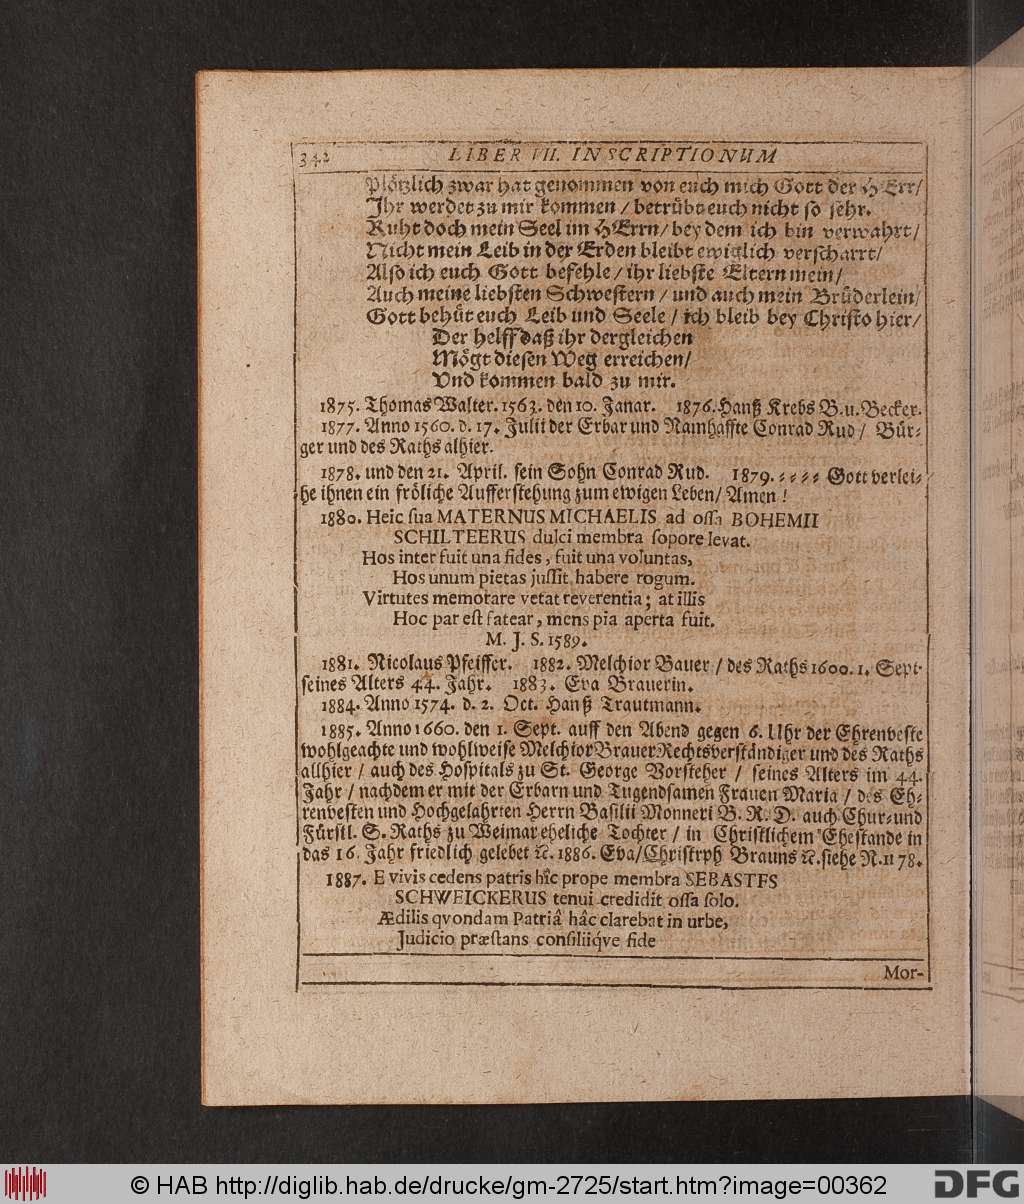 342 LIBER VII. INSCRIPTIONUM
Plötzlich zwar hat genommen von euch mich Gott der HErr/
Ihr werdet zu mir kommen / betrübt euch nicht so sehr.
Ruht doch mein Seel im HErrn/ bey dem ich bin verwahrt/
Nicht mein Leib in der Erden bleibt ewiglich verscharrt/
Also ich euch Gott befehle / ihr liebste Eltern mein/
Auch meine liebsten Schwestern / und auch mein Brüderlein/
Gott behüt euch Leib und Seele / ich bleib bey Christo hier/
Der helff daß ihr dergleichen
Mögt diesen Weg erreichen/
Und kommen bald zu mir.
1875. Thomas Walter. 1563. den 10. Janar. 1876. Hanß Krebs B. u. Becker.
1877. Anno 1560. d. 17. Julii der Erbar und Namhaffte Conrad Rud / Bür-
ger und des Raths alhier.
1878. und den 21. April. sein Sohn Conrad Rud. 1879. - - - - Gott verlei-
he ihnen ein fröliche Aufferstehung zum ewigen Leben/ Amen!
1880. Heic sua MATERNUS MICHAELIS ad ossa BOHEMII
SCHILTEERUS dulci membra sopore levat.
Hos inter fuit una fides, fuit una voluntas,
Hos unum pietas jussit habere rogum.
Virtutes memorare vetat reverentia; at illis
Hoc par est fatear, mens pia aperta fuit.
M. J. S. 1589.
1881. Nicolaus Pfeiffer. 1882. Melchior Bauer / des Raths 1600. 1. Sept.
seines Alters 44. Jahr. 1883. Eva Brauerin.
1884. Anno 1574. d. 2. Oct. Hanß Trautmann.
1885. Anno 1660. den 1. Sept. auff den Abend gegen 6. Uhr der Ehrenveste
wohlgeachte und wohlweise Melchior Brauer Rechtsverständiger und des Raths
allhier / auch des Hospitals zu St. George Vorsteher / seines Alters im 44.
Jahr / nachdem er mit der Erbarn und Tugendsamen Frauen Maria / des Eh-
renvesten und Hochgelahrten Herrn Basilii Monneri B. R. D. auch Chur- und
Fürstl. S. Raths zu Weimar eheliche Tochter / in Christlichem Ehestande in
das 16. Jahr friedlich gelebet ꝛc. 1886. Eva/ Christrph Brauns ꝛc. siehe N. 1178.
1887. E vivis cedens patris hîc prope membra SEBASTES
SCHWEICKERUS tenui credidit ossa solo.
Ædilis qvondam Patriâ hâc clarebat in urbe,
Judicio præstans consiliiq́ve fide
Mor-
© HAB http://diglib.hab.de/drucke/gm-2725/start.htm?image=00362
DFG